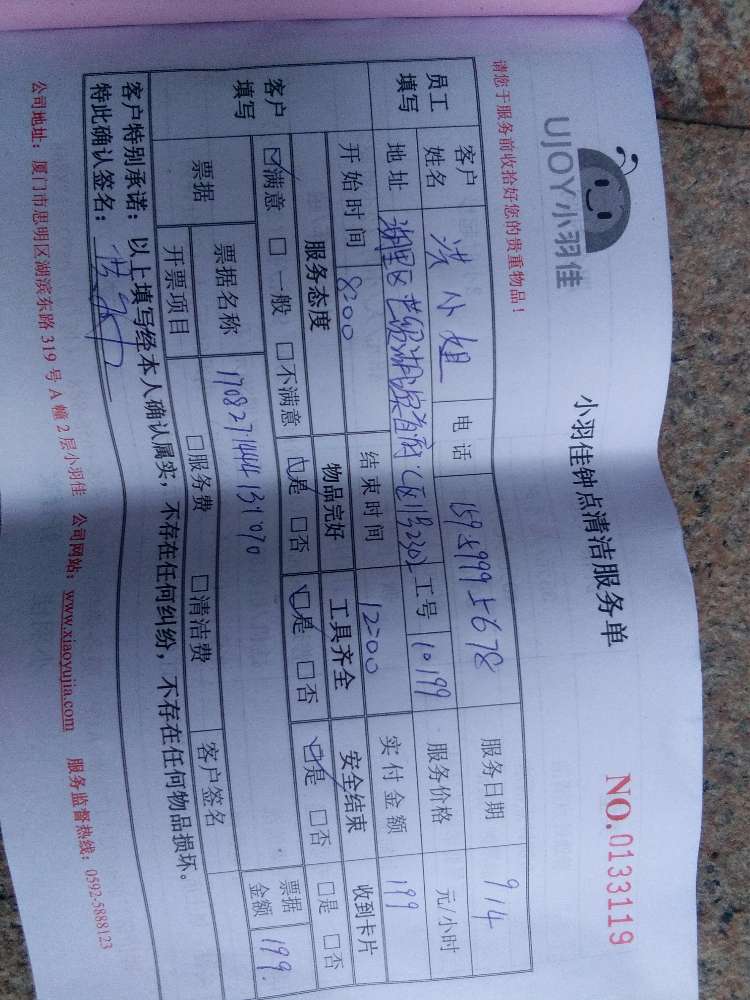 UJOY小羽佳
小羽佳钟点清洁服务单
NO.0133119
请您于服务前收拾好您的贵重物品！
员工填写 客户姓名 洪小姐 电话 15959995678 服务日期 9/4
地址 湖里区 工号 10199 服务价格 元/小时
开始时间 8:00 结束时间 12:00 实付金额 199
客户填写 服务态度 物品完好 工具齐全 安全结束 收到卡片
☑满意 □一般 □不满意 ☑是 □否 ☑是 □否 ☑是 □否 □是 □否
票据 票据名称 票据金额 199.
开票项目 □服务费 □清洁费 客户签名
客户特别承诺：以上填写经本人确认属实，不存在任何纠纷，不存在任何物品损坏。
特此确认签名：
公司地址：厦门市思明区湖滨东路319号A幢2层小羽佳 公司网站：www.xiaoyujia.com 服务监督热线：0592-5888123